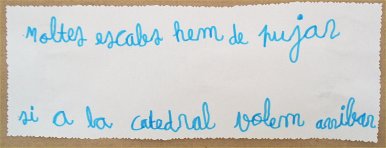 Moltes escabs hem de pujar
si a la catedral volem arribar